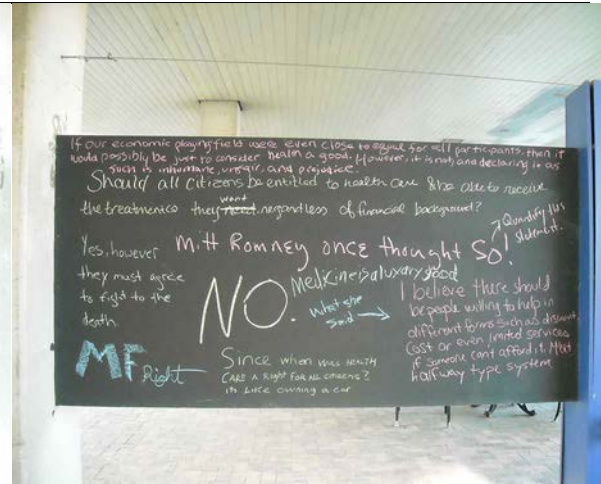 If our economic playing field were even close to equal for all participants, then it
would possibly be just to consider health a good. However, it is not, and declaring it as
such is inhumane, unfair, and prejudice.
Should all citizens be entitled to health care & be able to receive
the treatments they need want regardless of financial background?
Quantify this
statement.
Mitt Romney once thought so!
Yes, however
they must agree
to fight to the
death.
NO.
Medicine is a luxury good
What she
said →
I believe there should
be people willing to help in
different forms such as discount
cost or even limited services
if someone can't afford it. Meet
halfway type system
MF Right
Since when was HEALTH
CARE A Right FOR ALL citizens?
its like owning a car